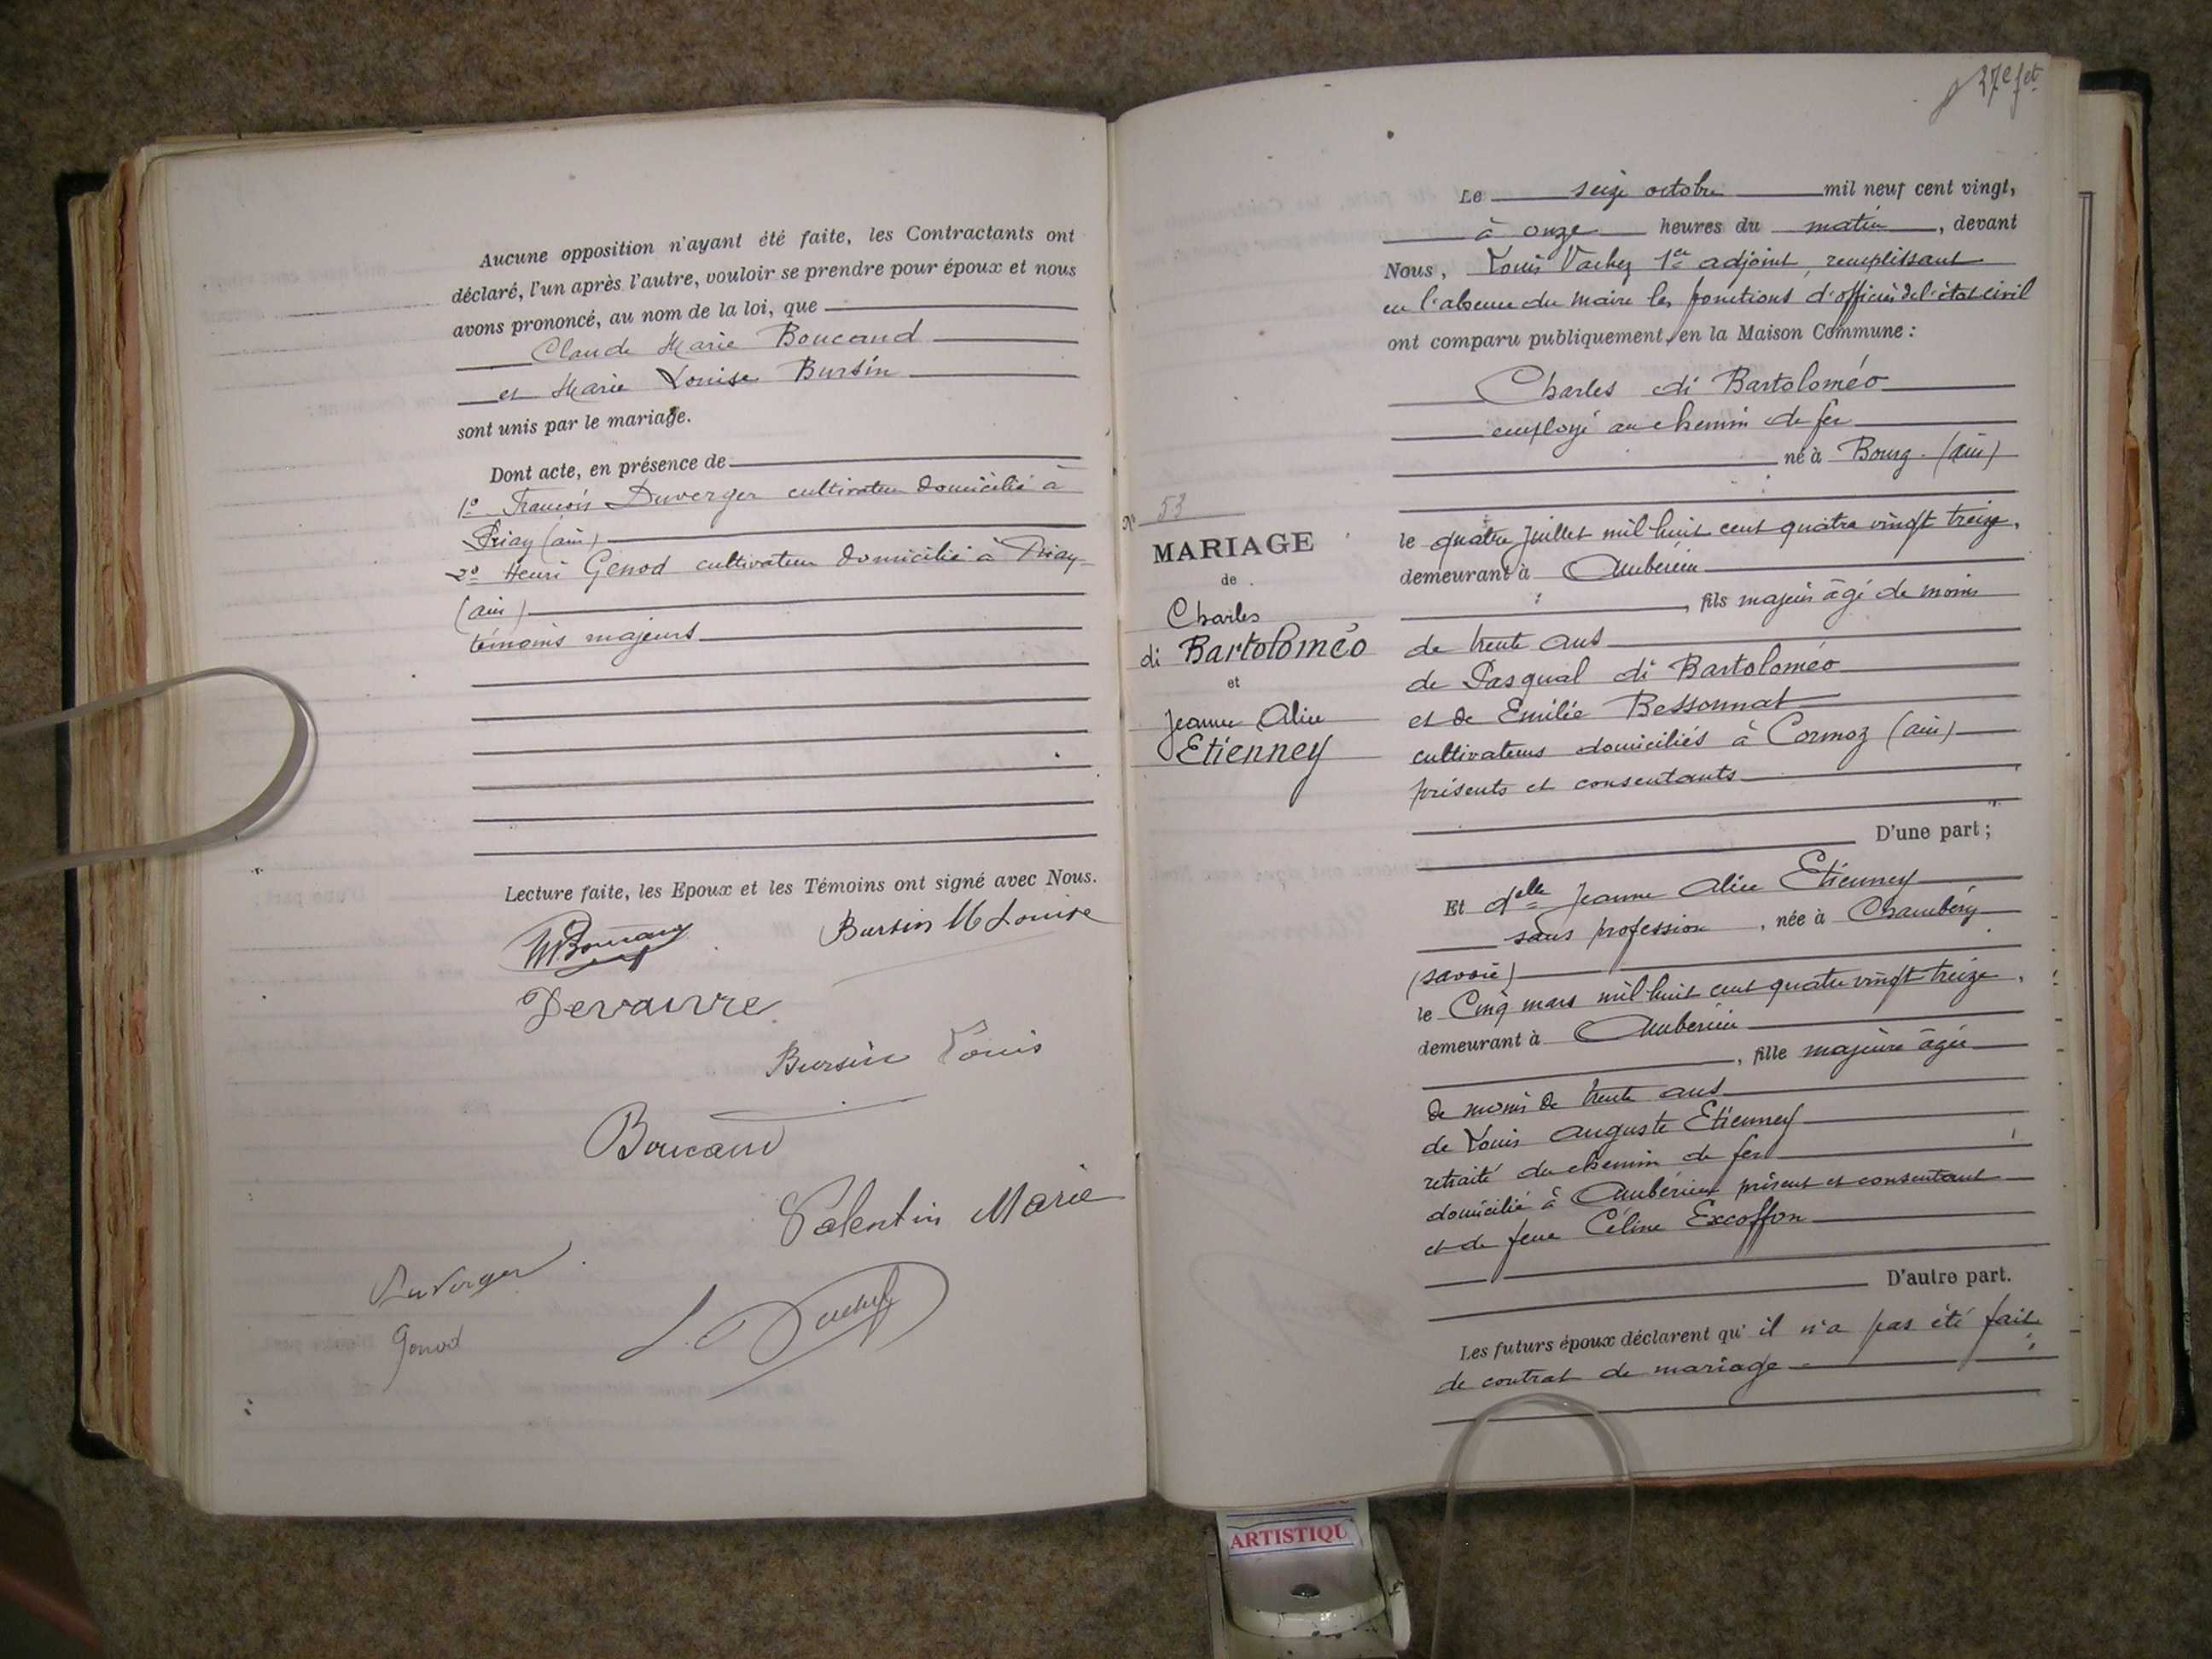 Aucune opposition n'ayant été faite, les Contractants ont
déclaré, l'un après l'autre, vouloir se prendre pour époux et nous
avons prononcé, au nom de la loi, que
Claude Marie Boucaud
et Marie Louise Bursin
sont unis par le mariage.
Dont acte, en présence de
1º François Duverger cultivateur domicilié à
Priay (ain)
2º Henri Genod cultivateur domicilié à Priay
(ain)
témoins majeurs
Lecture faite, les Epoux et les Témoins ont signé avec Nous.
Bursin M Louise
Devauvre
Bursin Louis
Boucaud
Valentin Marie
Duverger
Genod
37e fet
Le seize octobre mil neuf cent vingt,
à onze heures du matin, devant
Nous, Louis Vachez 1er adjoint, remplissant
en l'absence du maire les fonctions d'officier de l'état civil
ont comparu publiquement en la Maison Commune :
Charles di Bartoloméo
employé au chemin de fer
né à Bourg. (ain)
le quatre juillet mil huit cent quatre vingt treize,
demeurant à Ambérieu
, fils majeur âgé de moins
de trente ans
de Pasqual di Bartoloméo
et de Emilie Bessonnat
cultivateurs domiciliés à Cormoz (ain)
présents et consentants
D'une part ;
Et delle Jeanne Alice Etienney
sans profession, née à Chambéry
(savoie)
le Cinq mars mil huit cent quatre vingt treize,
demeurant à Ambérieu
, fille majeure âgée
de moins de trente ans
de Louis Auguste Etienney
retraité du chemin de fer
domicilié à Ambérieu présent et consentant
et de feue Céline Excoffon
D'autre part.
Les futurs époux déclarent qu'il n'a pas été fait
de contrat de mariage
Nº 53
MARIAGE
de
Charles
di Bartoloméo
et
Jeanne Alice
Etienney
ARTISTIQU